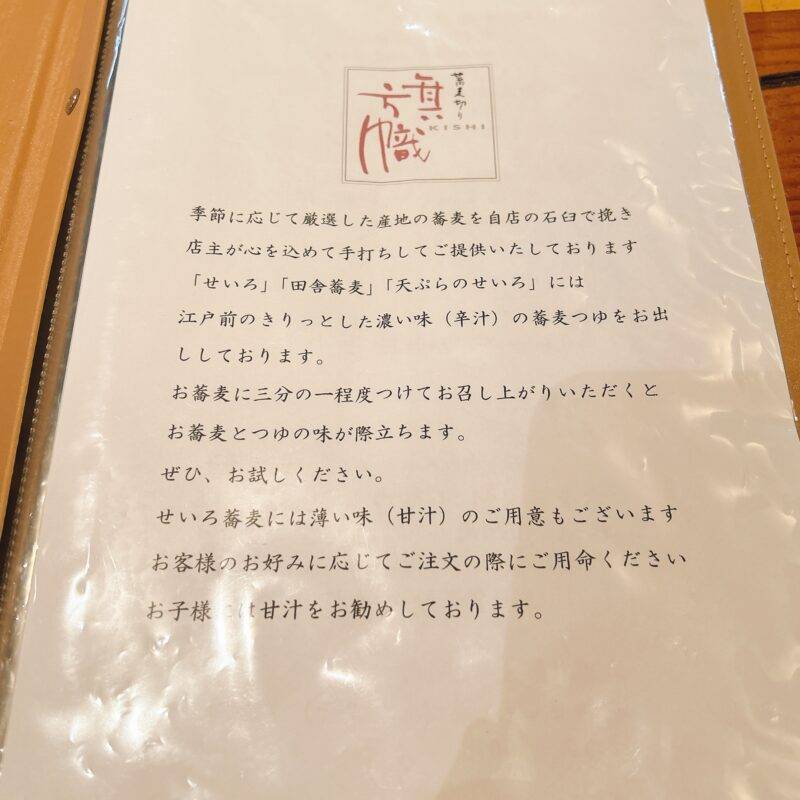 蕎麦切り
旗幟
KISHI
季節に応じて厳選した産地の蕎麦を自店の石臼で挽き
店主が心を込めて手打ちしてご提供いたしております
「せいろ」「田舎蕎麦」「天ぷらのせいろ」には
江戸前のきりっとした濃い味（辛汁）の蕎麦つゆをお出
ししております。
お蕎麦に三分の一程度つけてお召し上がりいただくと
お蕎麦とつゆの味が際立ちます。
ぜひ、お試しください。
せいろ蕎麦には薄い味（甘汁）のご用意もございます
お客様のお好みに応じてご注文の際にご用命ください
お子様には甘汁をお勧めしております。